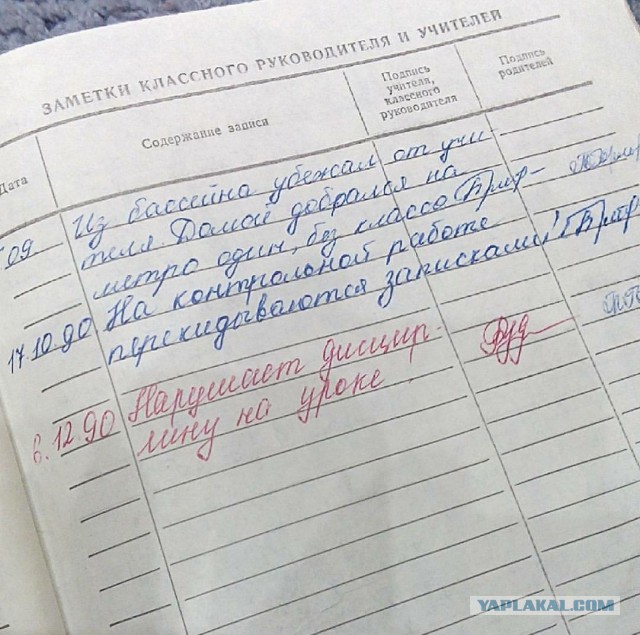 ЗАМЕТКИ КЛАССНОГО РУКОВОДИТЕЛЯ И УЧИТЕЛЕЙ
Дата
Содержание записи
Подпись
учителя,
классного
руководителя
Подпись
родителей
09 Из бассейна убежал от учи-
теля. Домой добрался на
метро один, без класса
17.10.90 На контрольной работе
перекидываются записками!
6.12.90 Нарушает дисцип-
лину на уроке
YAPLAKAL.COM